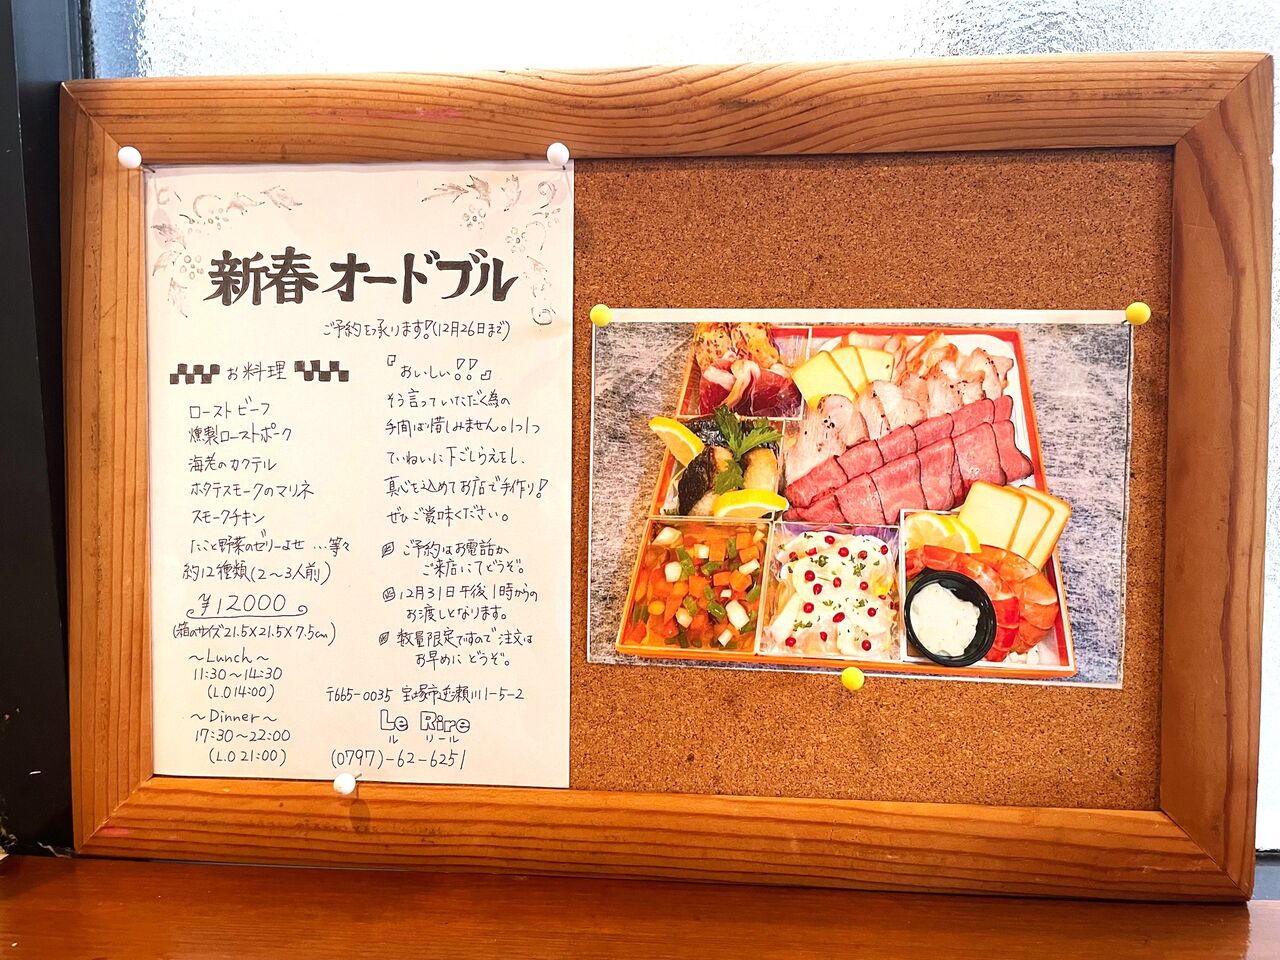 新春オードブル
ご予約を承ります!(12月26日まで)
お料理
ローストビーフ
燻製ローストポーク
海老のカクテル
ホタテスモークのマリネ
スモークチキン
たこと野菜のゼリーよせ…等々
約12種類(2〜3人前)
¥12000
(箱のサイズ21.5×21.5×7.5cm)
〜Lunch〜
11:30〜14:30
(L.O14:00)
〜Dinner〜
17:30〜22:00
(L.O 21:00)
『おいしい!!』
そう言っていただく為の
手間は惜しみません。1つ1つ
ていねいに下ごしらえをし、
真心を込めてお店で手作り!
ぜひご賞味ください。
ご予約はお電話か
ご来店にてどうぞ。
12月31日午後1時からの
お渡しとなります。
数量限定ですのでご注文は
お早めにどうぞ。
〒665-0035 宝塚市逆瀬川1-5-2
Le Rire
ル リール
(0797)-62-6251